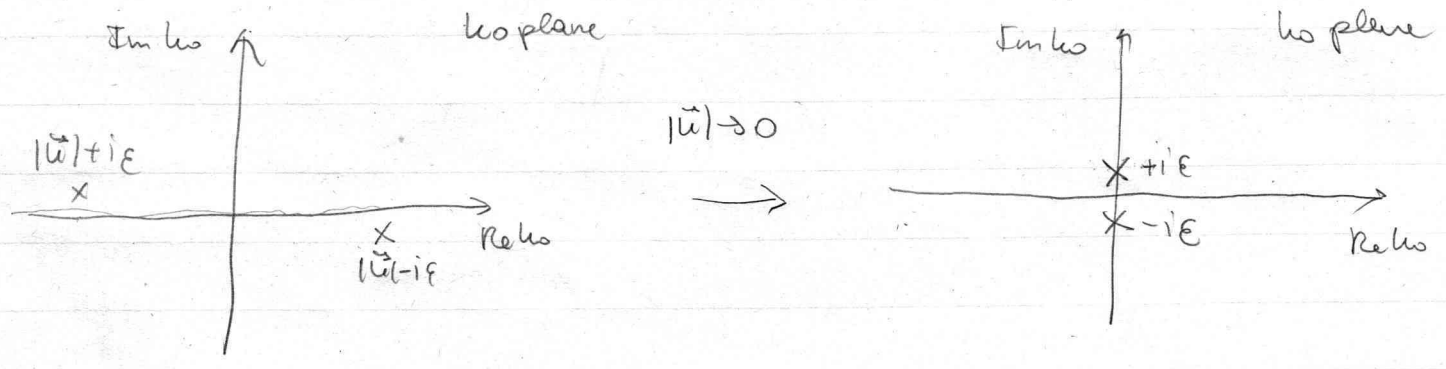 Im k₀
k₀ plane
|k⃗|+iε
|k⃗|-iε
Re k₀
|k⃗|→0
Im k₀
k₀ plane
+iε
-iε
Re k₀